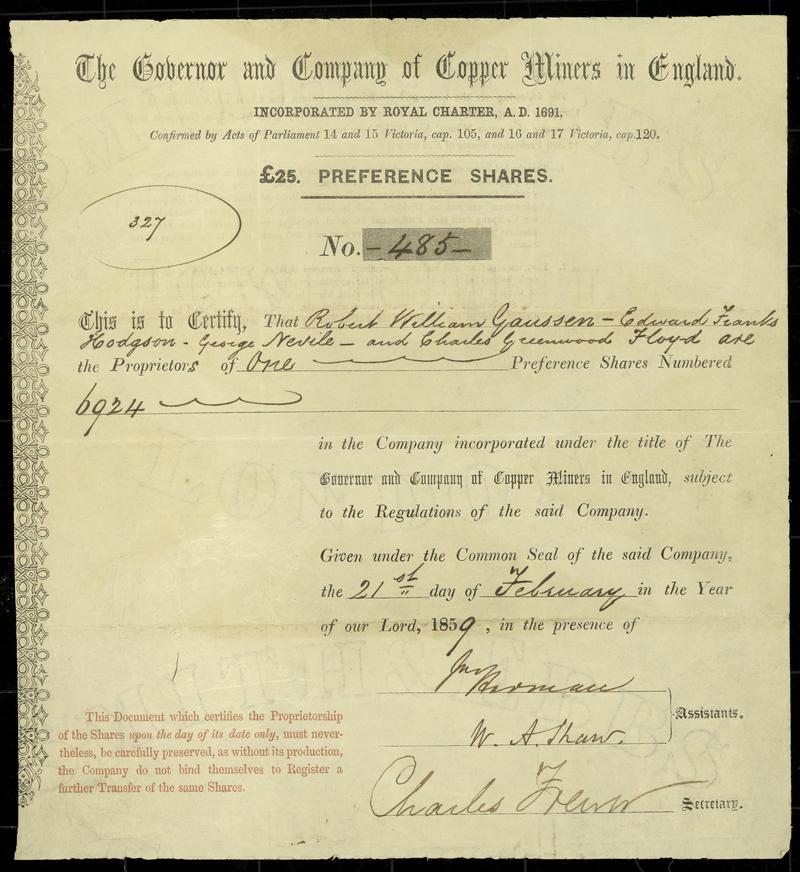 The Governor and Company of Copper Miners in England.
INCORPORATED BY ROYAL CHARTER, A. D. 1691.
Confirmed by Acts of Parliament 14 and 15 Victoria, cap. 105, and 16 and 17 Victoria, cap. 120.
£25. PREFERENCE SHARES.
327
No. - 485 -
This is to Certify, That Robert William Gaussen - Edward Franks
Hodgson - George Nevile - and Charles Greenwood Floyd are
the Proprietors of One Preference Shares Numbered
6924
in the Company incorporated under the title of The
Governor and Company of Copper Miners in England, subject
to the Regulations of the said Company.
Given under the Common Seal of the said Company,
the 21st day of February in the Year
of our Lord, 1859, in the presence of
Assistants.
W. A. Shaw.
This Document which certifies the Proprietorship
of the Shares upon the day of its date only, must never-
theless, be carefully preserved, as without its production,
the Company do not bind themselves to Register a
further Transfer of the same Shares.
Charles Secretary.